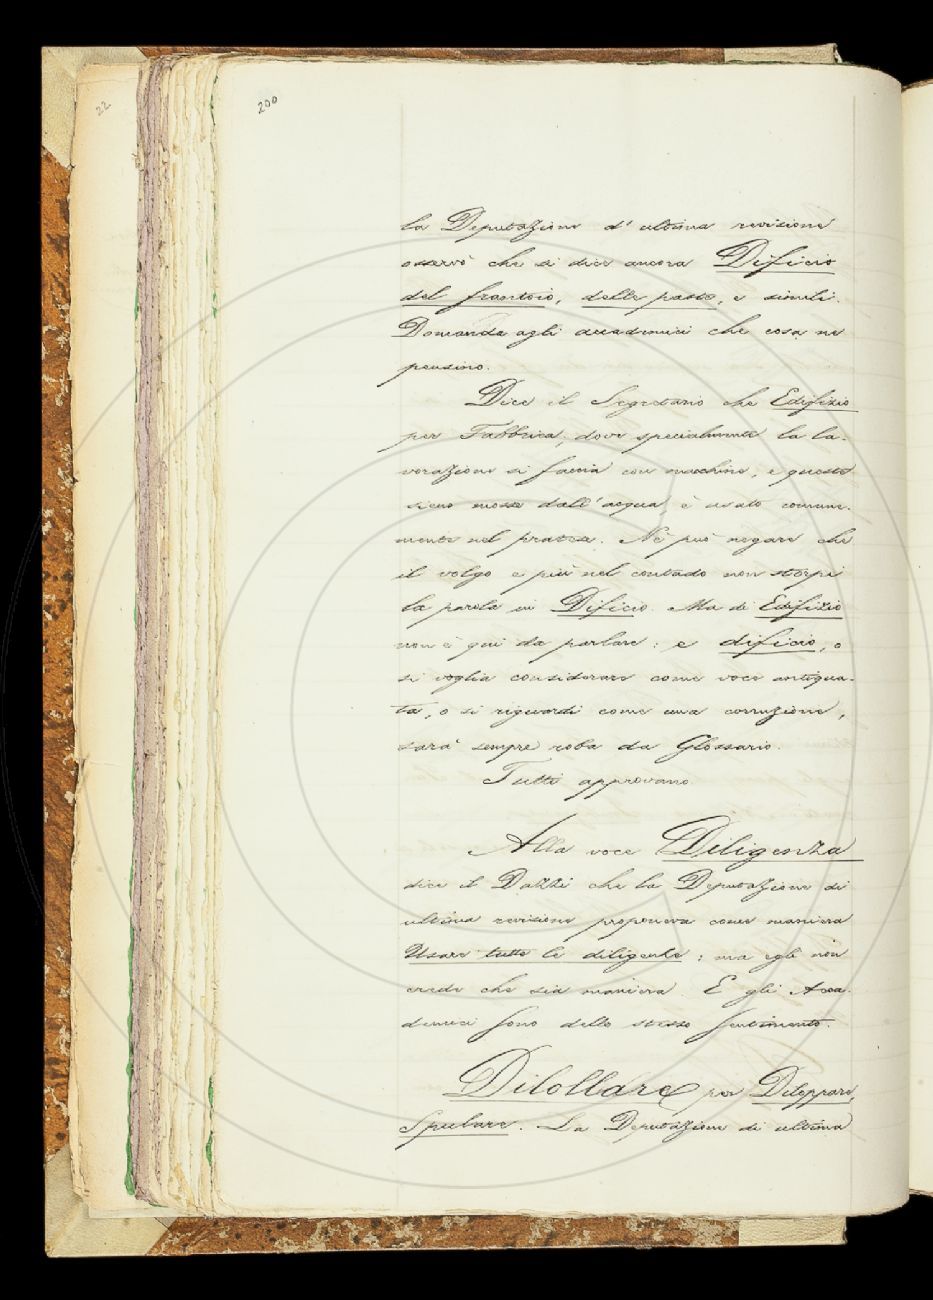 22
200
la Deputazione d'ultima revisione
osservò che si dice ancora Dificio
del frantoio, delle paste, e simili.
Domanda agli accademici che cosa ne
pensino.
Dice il Segretario che Edifizio
per Fabbrica, dove specialmente la la-
vorazione si faccia con macchine, e queste
sieno mosse dall'acqua, è usato comune-
mente nel pratese. Nè può negare che
il volgo e più nel contado non storpi
la parola in Dificio. Ma di Edifizio
non è qui da parlare: e dificio, o
si voglia considerare come voce antiqua-
ta, o si riguardi come una corruzione,
sarà sempre roba da Glossario.
Tutti approvano.
Alla voce Diligenza
dice il Dazzi che la Deputazione di
ultima revisione proponeva come maniera
Usare tutte le diligenze; ma egli non
crede che sia maniera. E gli Acca-
demici sono dello stesso sentimento.
Dilollare per Diloppare,
Spulare. La Deputazione di ultima